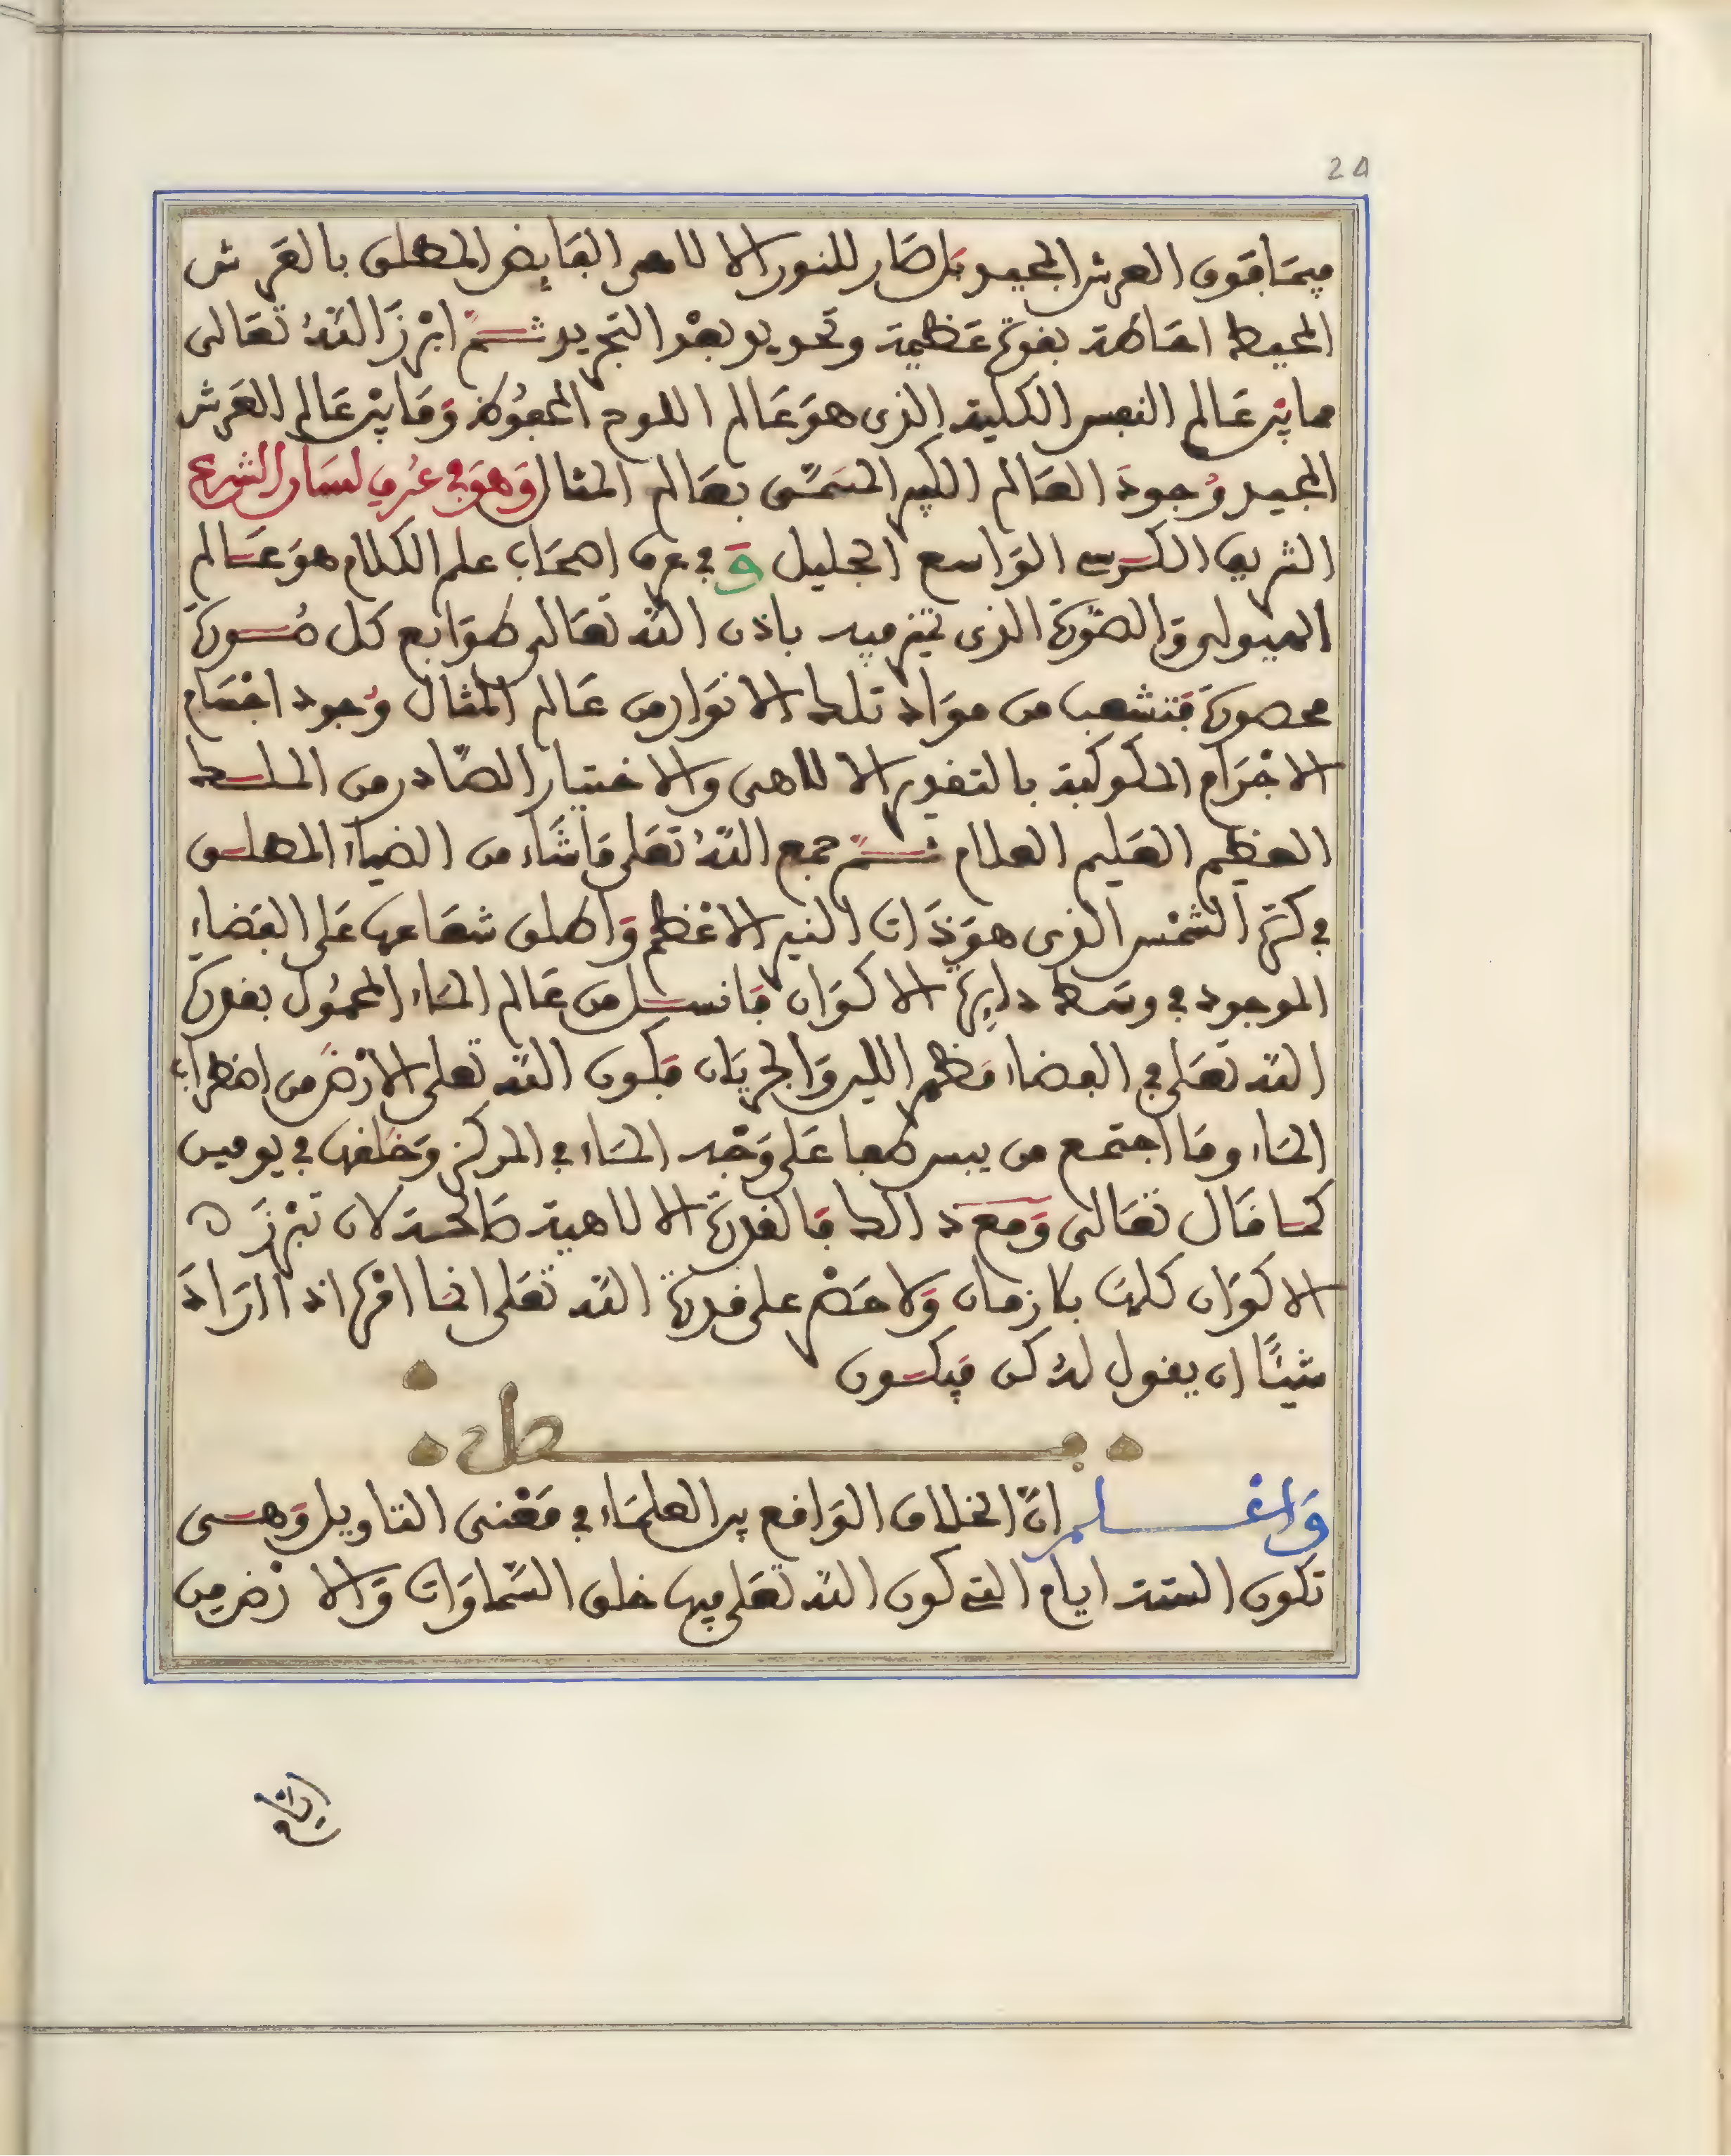 24
فيما فوق العرش المجيد بل صار للنور الالاهي الفايض المطلق بالعرش
المحيط احاطة بقوة عظيمة وتحويو بعد التجريد ثم ابرز الله تعالى
ما بين عالم النفس الكلية الذي هو عالم اللوح المحفوظ وما بين عالم العرش
المجيد وجود العالم الكبير المسمى بعالم المثال وهو في عرف لسان الشرع
الشريف الكرسي الواسع الجليل و في عرف اصحاب علم الكلام هو عالم
الهيولى والصورة الذي تميز فيه باذن الله تعالى طوابع كل صورة
محصورة فتشعب من مواد تلك الانوار من عالم المثال وجود اجسام
الاجرام الملكوكبة بالتقدير الالاهي والاختيار الصادر من الملك
العظيم العليم العلام ثم جمع الله تعلى ما شاء من الضياء المطلق
في كرة الشمس الذي هو ذات النير الاعظم واطلق شعاعها على الفضاء
الموجود في وسط دايرة الاكوان فانسل من عالم الماء المحمول بقدرة
الله تعلى في الفضاء فظهر الليل والجريان فكون الله تعلى الارض من اضطراب
الماء وما اجتمع من يبس طفا على وجه الماء في المركز وخلقها في يومين
كما قال تعالى ومع ذالك فالقدرة الالاهية صالحة لان تبرز ه
الاكوان كلها بلا زمان ولا حصر على قدرة الله تعلى انما امره اذا اراد
شيئا ان يقول له كن فيكون
فصل
واعلم ان الخلاف الواقع بين العلماء في معنى التاويل وهي
تكون الستة ايام التي كون الله تعلى فيها خلق السماوات والارض من